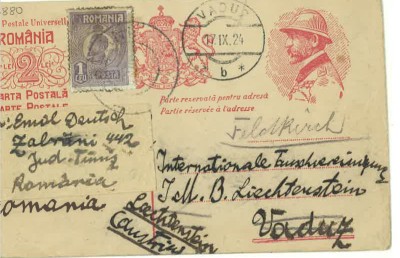 880
Postale Universelle
ROMÂNIA
2
LEI
CARTA POSTALĂ
CARTE POSTALE
ROMANIA
1
LEU
POSTA
VADUZ
17.IX.24
b *
Parte rezervată pentru adresă
Partie réservée à l'adresse
Emil Deutsch
Zabrăni 442
Jud. Timiș
România
omania
Feldkirch
Internationale
I. M. B. Liechtenstein
Vaduz
Liechtenstein
(Austria)